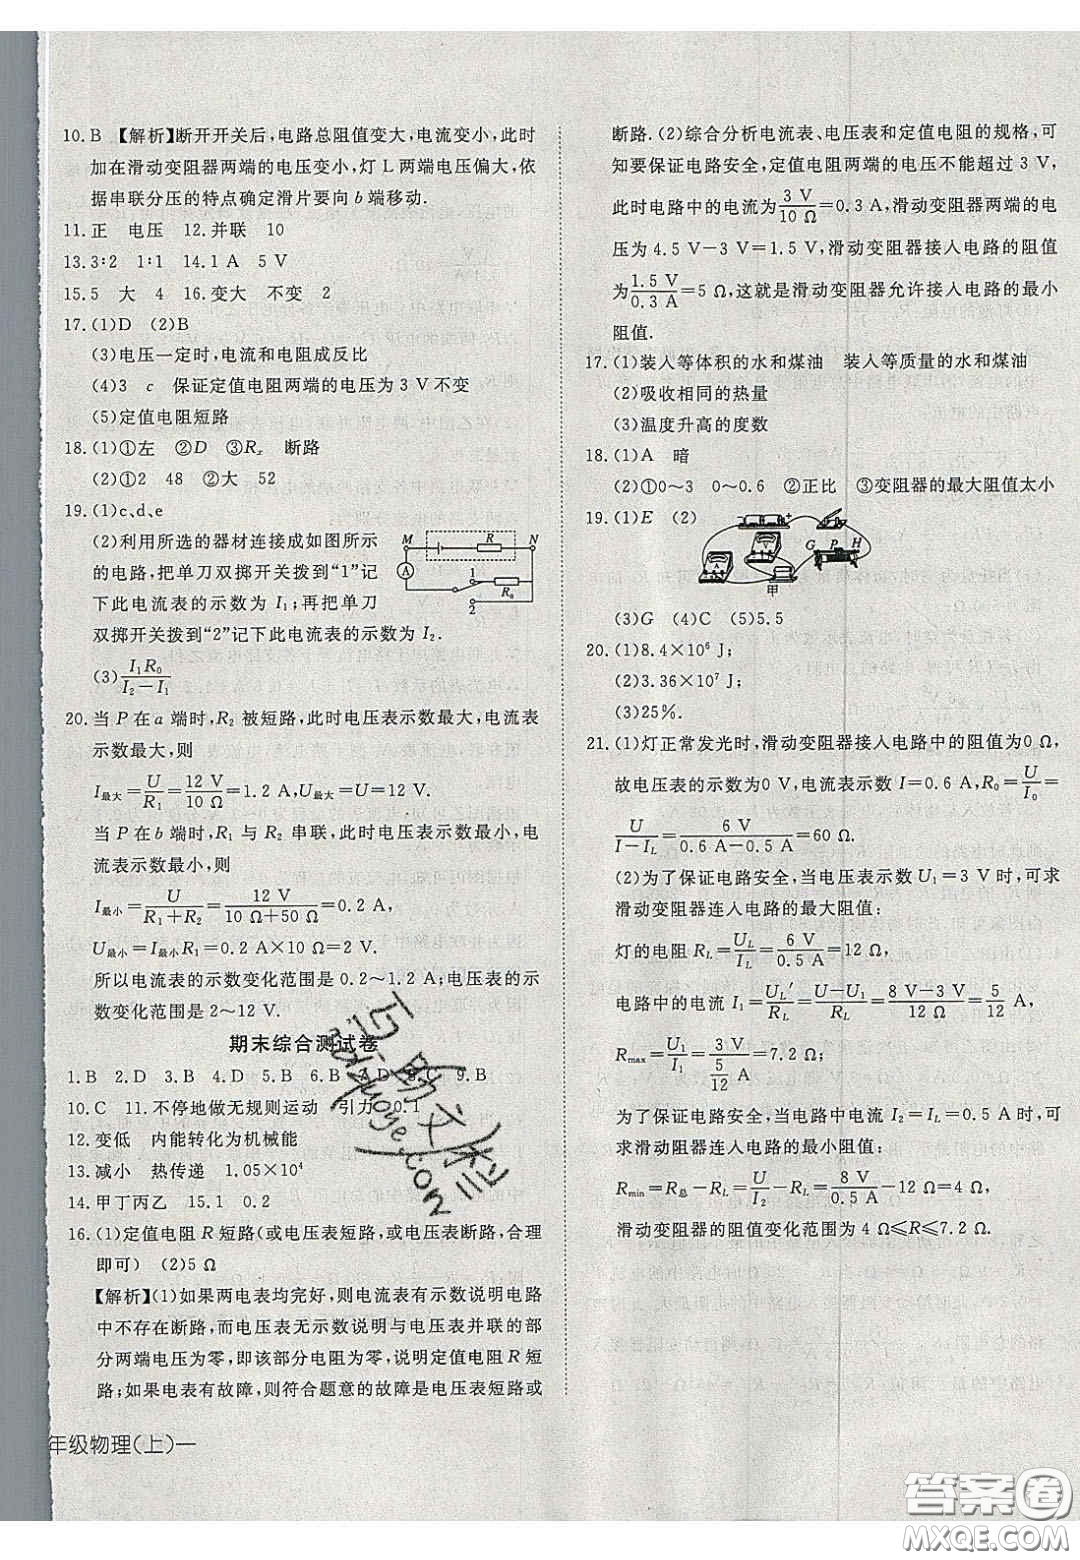 10. B 【解析】断开开关后,电路总阻值变大,电流变小,此时
加在滑动变阻器两端的电压变小,灯 L 两端电压偏大,依
据串联分压的特点确定滑片要向 b 端移动.
11. 正 电压 12. 并联 10
13. 3∶2 1∶1 14. 1 A 5 V
15. 5 大 4 16. 变大 不变 2
17. (1)D (2)B
(3)电压一定时,电流和电阻成反比
(4)3 c 保证定值电阻两端的电压为 3 V 不变
(5)定值电阻短路
18. (1)①左 ②D ③Rₓ 断路
(2)①2 48 ②大 52
19. (1)c、d、e
(2)利用所选的器材连接成如图所示
的电路,把单刀双掷开关拨到“1”记
下此电流表的示数为 I₁;再把单刀
双掷开关拨到“2”记下此电流表的示数为 I₂.
M R N A 1 2 R₀
(3) I₁R₀/(I₂−I₁)
20. 当 P 在 a 端时,R₂ 被短路,此时电压表示数最大,电流表
示数最大,则
I最大=U/R₁=12 V/10 Ω=1.2 A,U最大=U=12 V.
当 P 在 b 端时,R₁ 与 R₂ 串联,此时电压表示数最小,电
流表示数最小,则
I最小=U/(R₁+R₂)=12 V/(10 Ω+50 Ω)=0.2 A,
U最小=I最小R₁=0.2 A×10 Ω=2 V.
所以电流表的示数变化范围是 0.2～1.2 A;电压表的示
数变化范围是 2～12 V.
期末综合测试卷
1. B 2. D 3. B 4. D 5. B 6. B 7. D 8. C 9. B
10. C 11. 不停地做无规则运动 引力 0.1
12. 变低 内能转化为机械能
13. 减小 热传递 1.05×10⁴
14. 甲丁丙乙 15. 1 0.2
16. (1)定值电阻 R 短路(或电压表短路,或电压表断路,合理
即可) (2)5 Ω
【解析】(1)如果两电表均完好,则电流表有示数说明电路
中不存在断路,而电压表无示数说明与电压表并联的部
分两端电压为零,即该部分电阻为零,说明定值电阻 R 短
路;如果电表有故障,则符合题意的故障是电压表短路或
年级物理(上)一
断路.(2)综合分析电流表、电压表和定值电阻的规格,可
知要保证电路安全,定值电阻两端的电压不能超过 3 V,
此时电路中的电流为 3 V/10 Ω=0.3 A,滑动变阻器两端的电
压为 4.5 V−3 V=1.5 V,滑动变阻器接入电路的阻值
为 1.5 V/0.3 A=5 Ω,这就是滑动变阻器允许接入电路的最小
阻值.
17. (1)装入等体积的水和煤油 装入等质量的水和煤油
(2)吸收相同的热量
(3)温度升高的度数
18. (1)A 暗
(2)①0～3 0～0.6 ②正比 ③变阻器的最大阻值太小
19. (1)E (2)
G P H A V 甲
(3)G (4)C (5)5.5
20. (1)8.4×10⁶ J;
(2)3.36×10⁷ J;
(3)25%.
21. (1)灯正常发光时,滑动变阻器接入电路中的阻值为0 Ω,
故电压表的示数为0 V,电流表示数 I=0.6 A,R₀=U/I₀=
U/(I−I_L)=6 V/(0.6 A−0.5 A)=60 Ω.
(2)为了保证电路安全,当电压表示数 U₁=3 V 时,可求
滑动变阻器连入电路的最大阻值:
灯的电阻 R_L=U_L/I_L=6 V/0.5 A=12 Ω,
电路中的电流 I₁=U_L′/R_L=(U−U₁)/R_L=(8 V−3 V)/12 Ω=5/12 A,
Rmax=U₁/I₁=3 V/(5/12 A)=7.2 Ω;
为了保证电路安全,当电路中电流 I₂=I_L=0.5 A 时,可
求滑动阻器连入电路的最小阻值:
Rmin=R总−R_L=U/I₂−R_L=8 V/0.5 A−12 Ω=4 Ω,
滑动变阻器的阻值变化范围为 4 Ω≤R≤7.2 Ω.
答案圈
MXQE.COM